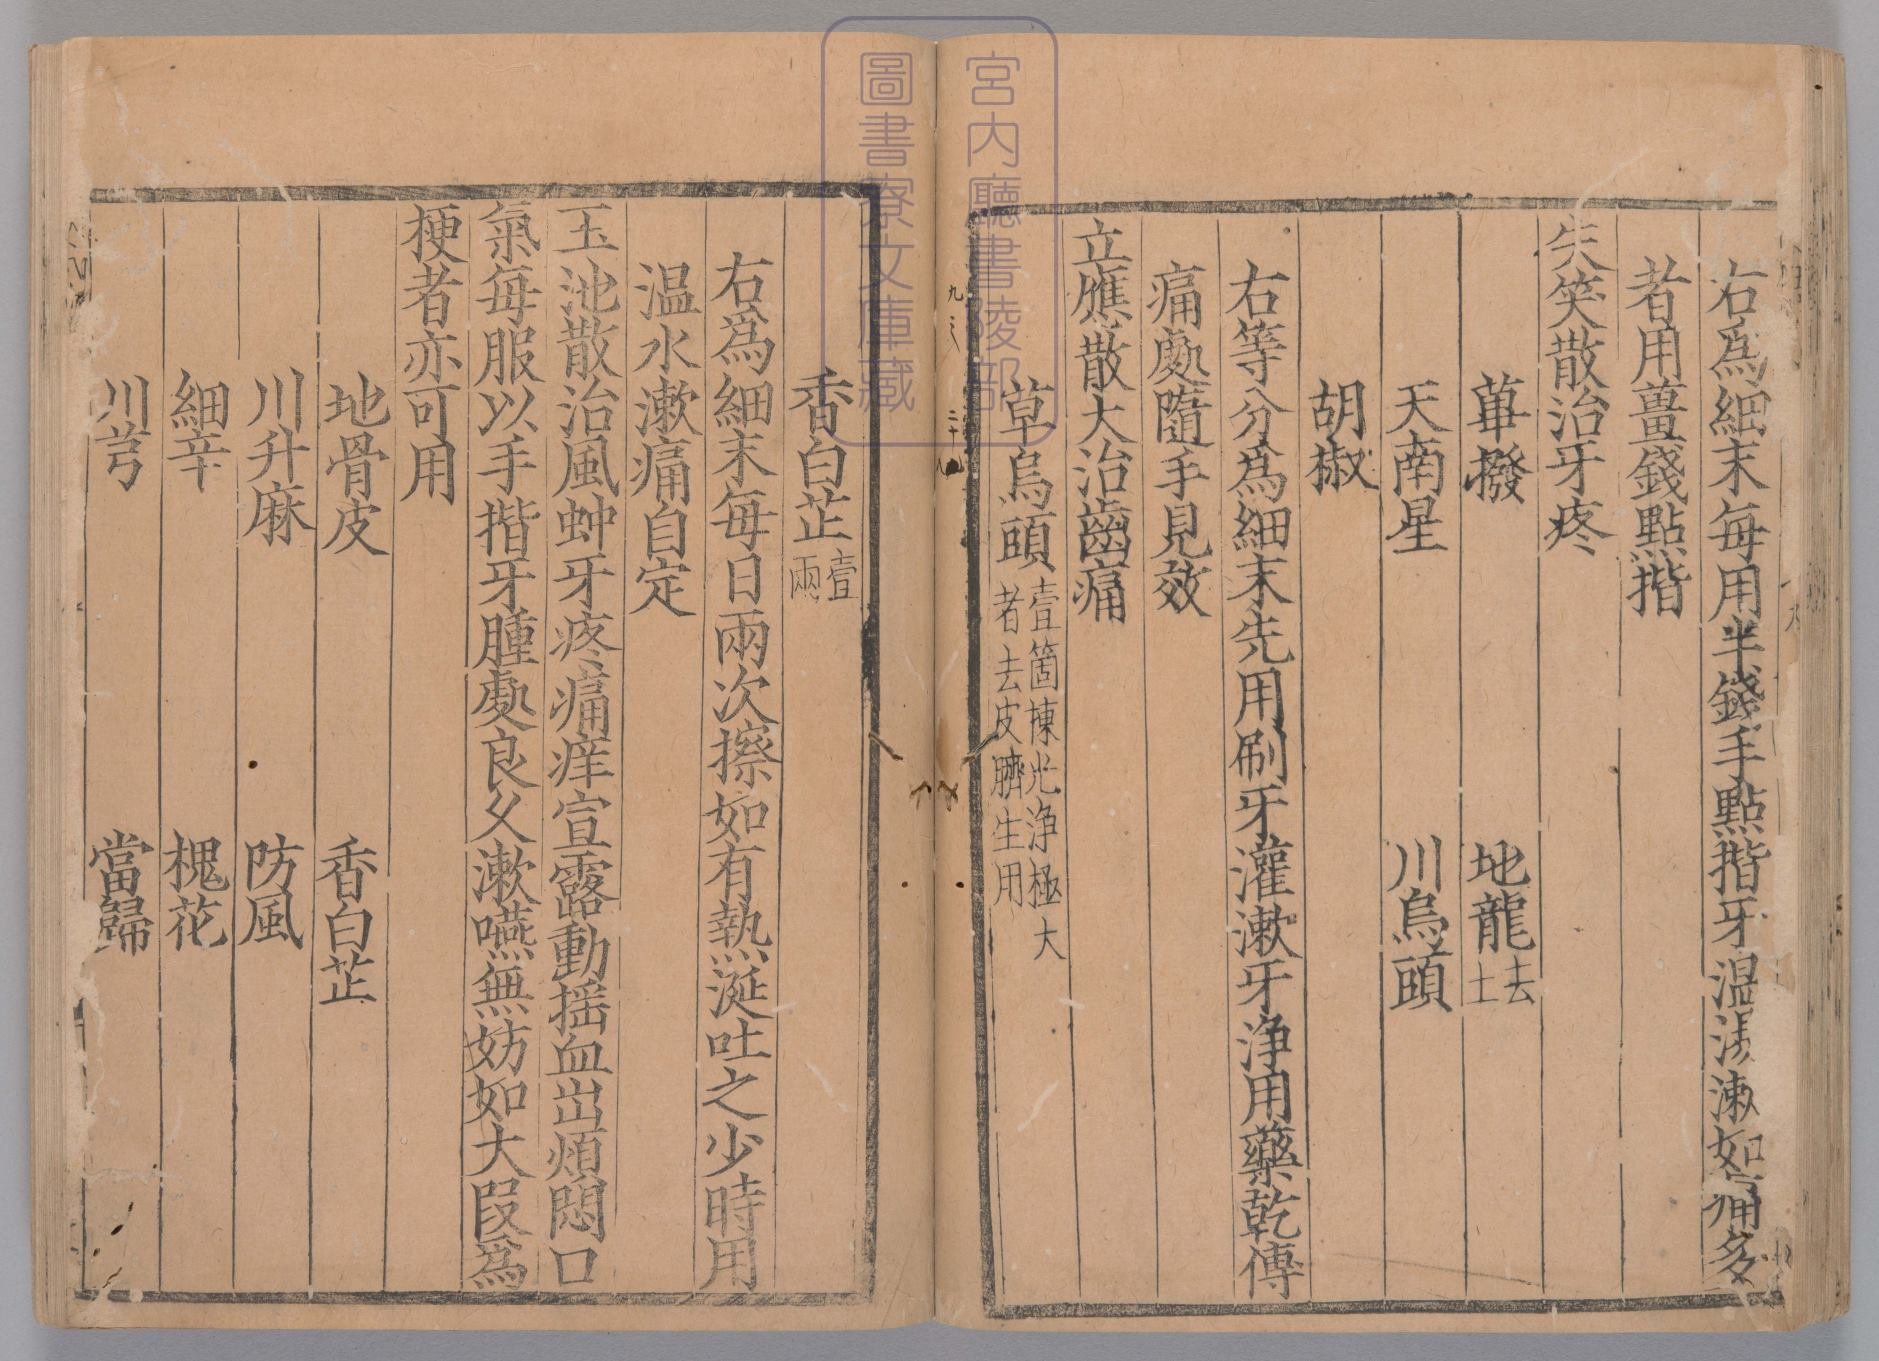 右爲細末每用半錢手點揩牙温漱如痛多
者用薑錢點揩
失笑散治牙疼
蓽撥 地龍去土
天南星 川烏頭
胡椒
右等分爲細末先用刷牙灌漱牙淨用藥乾傳
痛處隨手見效
立應散大治齒痛
草烏頭壹箇揀光淨極大者去皮臍生用
香白芷壹兩
右爲細末每日兩次擦如有熱涎吐之少時用
温水漱痛自定
玉池散治風蚛牙疼痛痒宣露動揺血出煩悶口
氣每服以手揩牙腫處良久漱嚥無妨如大叚爲
梗者亦可用
地骨皮 香白芷
川升麻 防風
細辛 槐花
川芎 當歸
宮内廳書陵部
圖書寮文庫藏